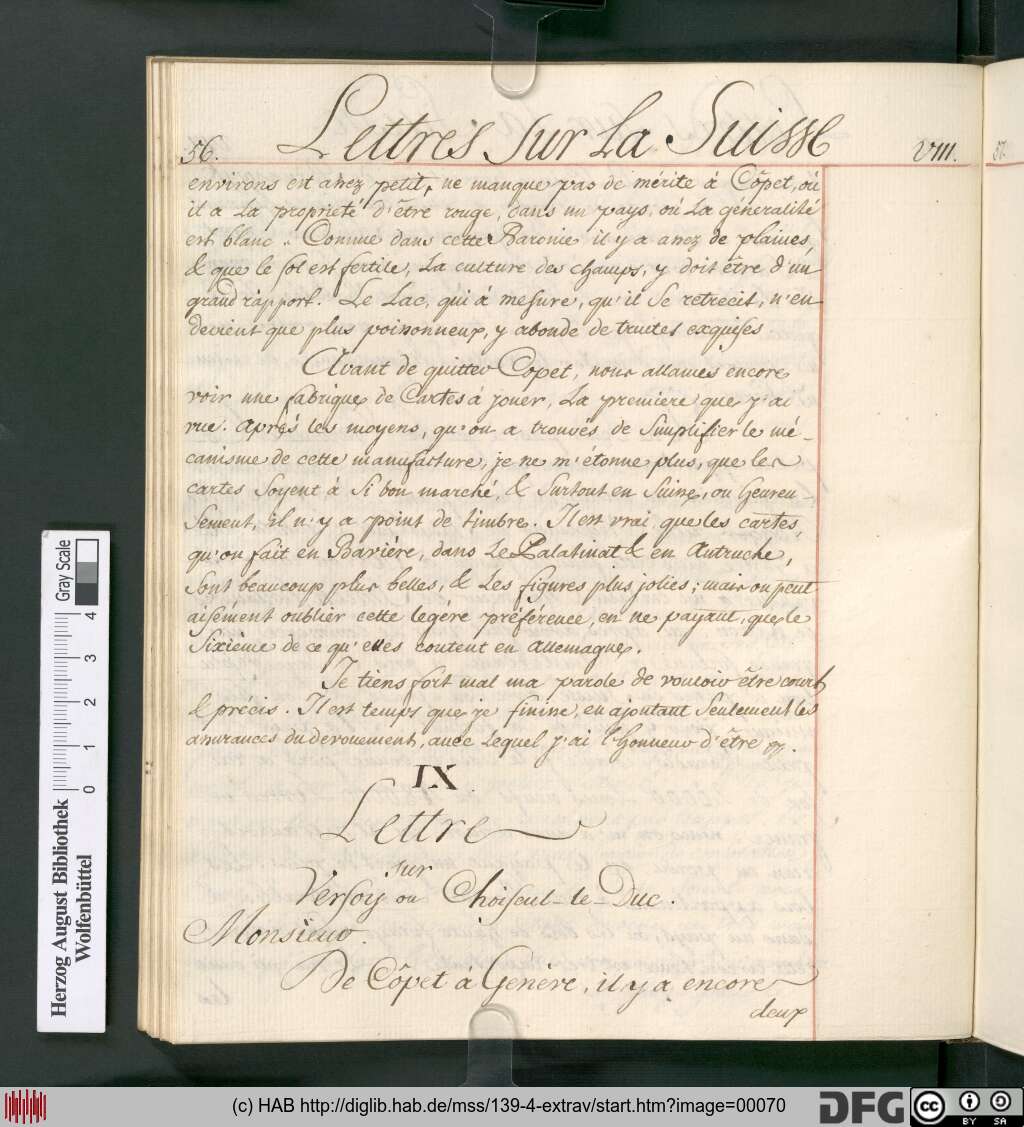 Lettres sur La Suisse
56.
VIII.
57.
environs est assez petit, ne manque pas de mérite à Côpet, où
il a la proprieté d'être rouge, dans un pays, où la généralité
est blanc. Comme dans cette Baronie il y a assez de plaines,
& que le sol est fertile, la culture des champs, y doit être d'un
grand rapport. Le Lac, qui à mesure, qu'il se retrecit, n'en
devient que plus poissonneux, y abonde de truites exquises
Avant de quitter Copet, nous allames encore
voir une fabrique de Cartes à jouer, La première que j'ai
vue. Après les moyens, qu'on a trouvés de simplifier le mé-
canisme de cette manufacture, je ne m'étonne plus, que les
cartes soyent à si bon marché, & surtout en Suisse, ou heureu-
sement, il n'y a point de timbre. Il est vrai que les cartes,
qu'on fait en Bavière, dans Le Palatinat & en Autruche,
sont beaucoup plus belles, & Les figures plus jolies; mais on peut
aisément oublier cette legére préférence, en ne payant, que le
sixième de ce qu'elles coutent en Allemagne.
Je tiens fort mal ma parole de vouloir être court
& précis. Il est temps que je finisse, en ajoutant seulement les
assurances du devouement, avec Lequel j'ai l'honneur d'être
IX
Lettre
sur
Versoy ou Choiseul-le-Duc.
Monsieur.
De Côpet à Genève, il y a encore
deux
Herzog August Bibliothek
Wolfenbüttel
0 1 2 3 4
Gray Scale
(c) HAB http://diglib.hab.de/mss/139-4-extrav/start.htm?image=00070
DFG
cc
BY SA